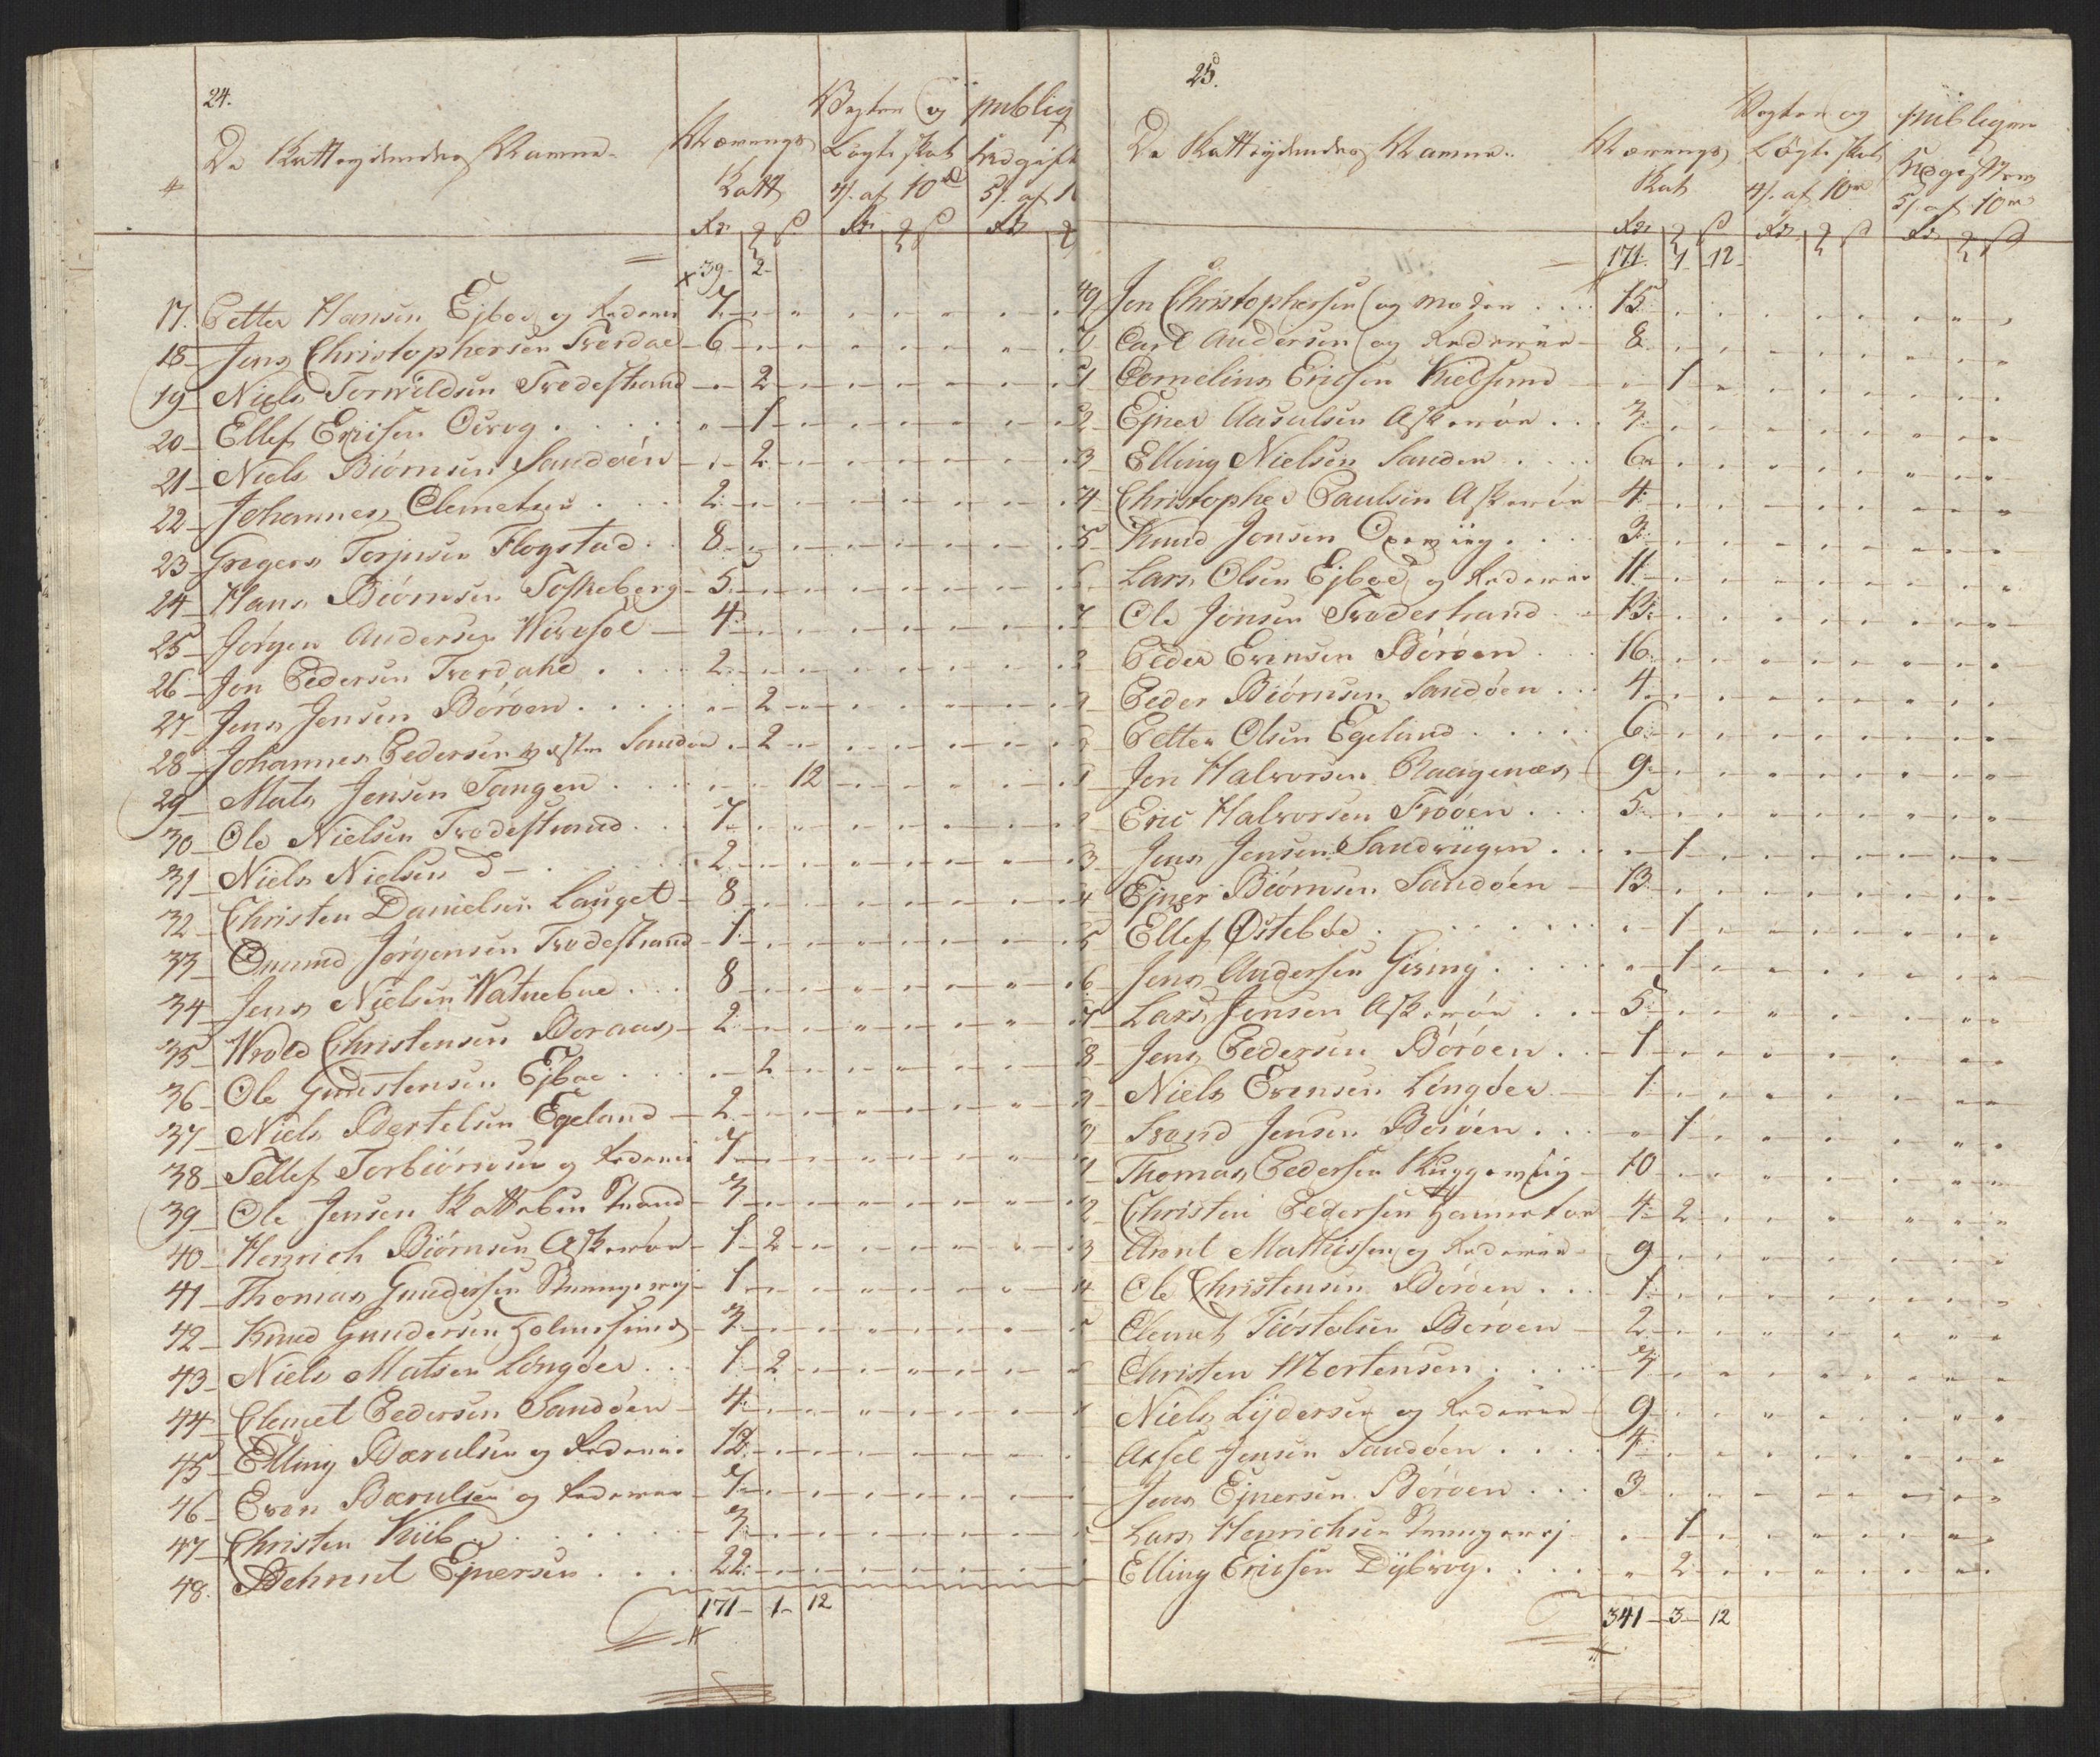 24.
De Skatteydendes Navne
Nærings Skatt
Vegter og Løgte skat 4/. af 10 rd
publiq Udgift 5/. af 1
Rdr
39 - 2 -
17. Petter Hansen Ejboe og Rederie 7
18 - Jens Christophersen Tverdae - 6
19 - Niels Torwildsen Tvedestrand - 2
20 - Ellef Ericsen Osvog . . . 1
21 - Niels Biörnsen Sandöen - 2
22 - Johannes Clemetsen . . . 2
23 - Gregers Terjusen Flogstad . . 8
24 - Hans Biörnsen Toskeberg - 5
25 - Jørgen Andersen Wirosöl - 4
26 - Jon Pedersen Tverdahe . . . 2
27 - Jens Jensen Böröen . . . 2
28 - Johannes Pedersen westre Sanden - 2
29 - Mats Jensen Tangen . . . 12
30 - Ole Nielsen Tvedestrand . . . 7
31 - Niels Nielsen D - . . . 2
32 - Christen Danielsen Lauget - 8
33 - Omund Jørgensen Tvedestrand - 1
34 - Jens Nielsen Watnebue . . . 8
35 - Wrold Christensen Boraas - 2
36 - Ole Gundstensen Ejboe . . . 2
37 - Niels Bertelsen Egeland - 2
38 - Tellef Torbiörnsen og Rederie 7
39 - Ole Jensen Kattebue Strand - 3
40 - Henrich Biörnsen Askerøe - 1 - 2
41 - Thomas Gundersen - 1
42 - Knud Gundersen Holmesund - 3
43 - Niels Matsen Löngöer . . . 1 2
44 - Clemet Pedersen Sandöen - 4
45 - Elling Bærulsen og Rederie 12
46 - Even Bærulsen og Rederie - 7
47 - Christen Kiib . . . 3
48. Behrent Ejnersen . . . 22
171 - 1 - 12
25.
De Skatteydendes Navne
Nærings Skat
Vegter og Løgte skat 4/. af 10 rd
publiqve Udgifter 5/. af 10 rd
Rdr
171. 1 12
49 Jon Christophersen og moder . . . 15
0 Carl Andersen og Rederie - 8
1 Cornelius Ericsen Kielsund - 1
2 Ejner Aasulsen Askerøe . . . 3
3 Elling Nielsen Sanden . . . 6
4 Christopher Paulsen Askerøe - 4
5 Knud Jonsen . . . 3
Lars Olsen Ejboe og Rederie 11
7 Ole Jonsen Tvedestrand - 13
Peder Evensen Böröen . . . 16
Peder Biörnsen Sandöen . . . 4
Petter Olsen Egeland . . . 6
1 Jon Halvorsen Raagenæs - 9
Eric Halvorsen Froöen . . . 5
3 Jens Jensen Sandvigen . . . 1
4 Ejner Biörnsen Sandöen - 13
5 Ellef Østeboe . . . 1
6 Jens Andersen Giving . . . 1
7 Lars Jensen Askerøe . . . 5
8 Jens Pedersen Böröen . . - 1
9 Niels Evensen Löngöer - 1
0 Svend Jensen Böröen . . . 1
1 Thomas Pedersen - 10
2 Christen Pedersen - 4 2
3 Arent Mathissen og Rederie - 9
4 Ole Christensen Böröen . . . 1
Clemet Tiöstolsen Böröen - 2
Christen Mortensen . . . 7
Niels Lydersen og Rederie - 9
Axsel Jensen Sandöen . . . 4
Jens Ejnersen Böröen . . . 3
Lars Henrichsen - 1
Elling Ericsen Dybvog . . . 2
341 - 3 - 12